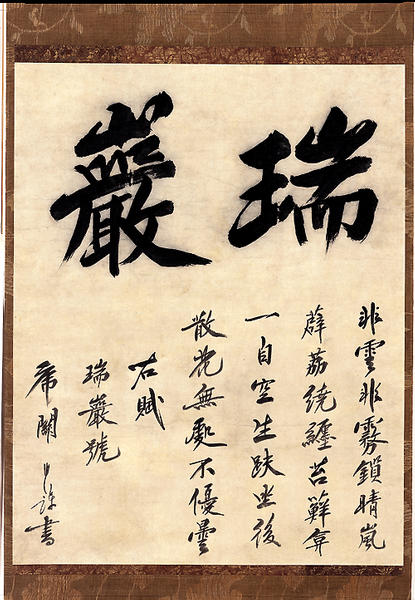 瑞巖
非雲非霧鎖晴嵐
薜荔繞纏苔蘚
一自空生趺坐後
散花無處不優曇
右賦
瑞巖號
關書